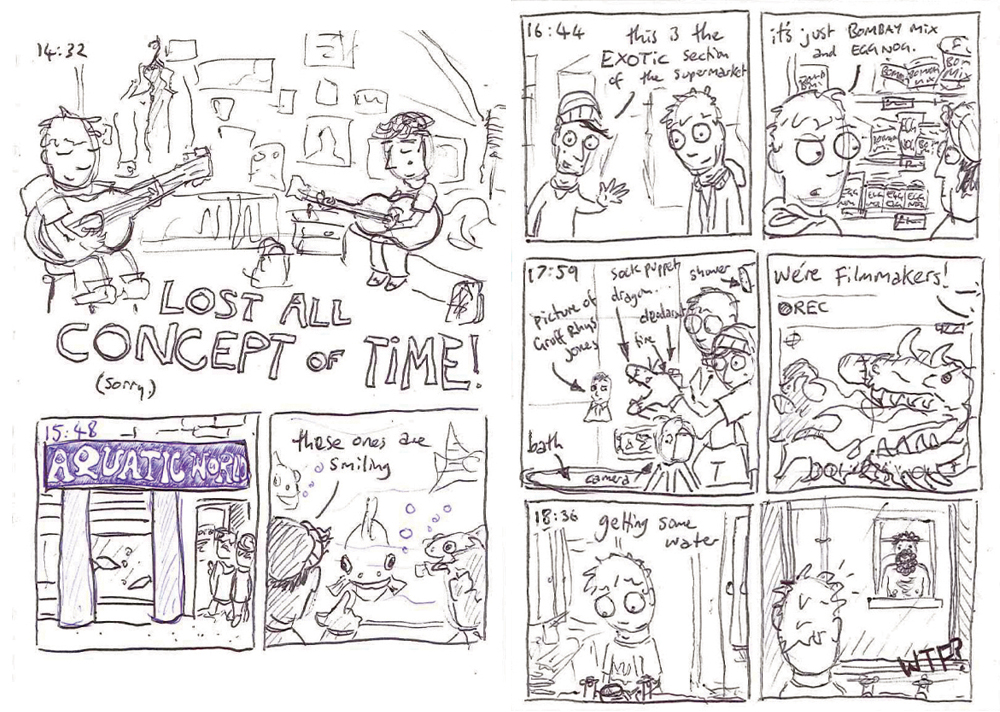 14:32
LOST ALL
CONCEPT OF TIME!
(sorry)
15:48
AQUATIC WORLD
these ones are
smiling
16:44
this is the
EXOTIC section
of the supermarket
it's just BOMBAY MIX
and EGG NOG.
BOMBAY
MIX
EGG
NOG
17:59
picture of
Griff Rhys
Jones
sock puppet
dragon...
deodorant
fire
shower
bath
camera
We're Filmmakers!
REC
18:36
getting some
water
WTF?